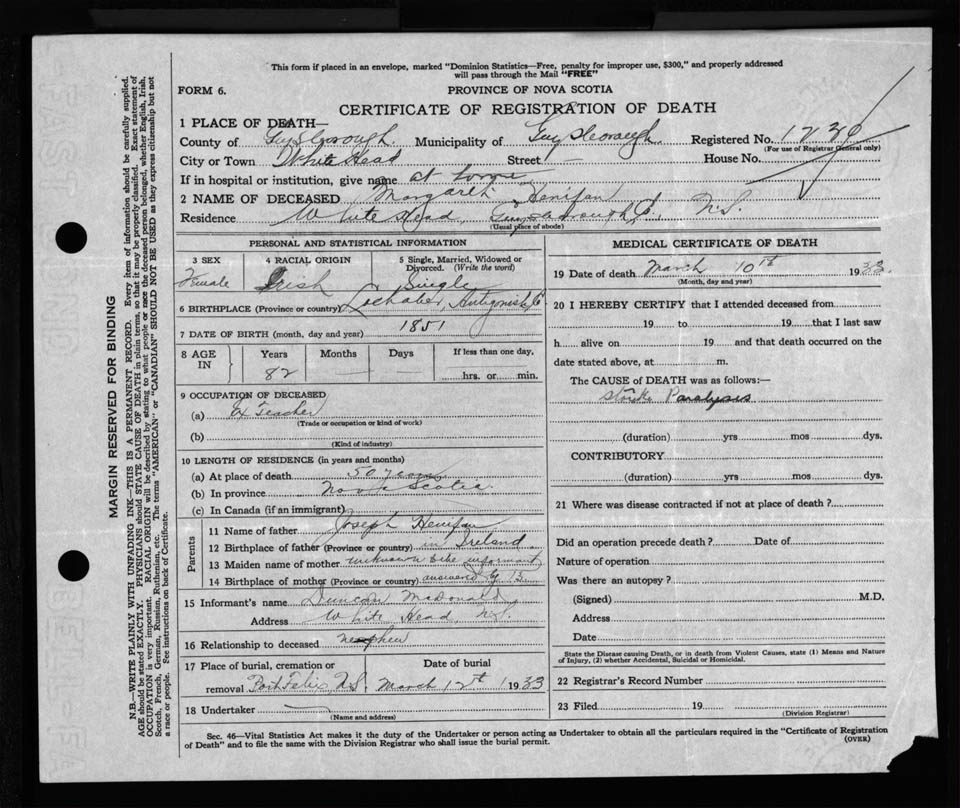 This form if placed in an envelope, marked "Dominion Statistics—Free, penalty for improper use, $300," and properly addressed
will pass through the Mail "FREE"
FORM 6.
PROVINCE OF NOVA SCOTIA
CERTIFICATE OF REGISTRATION OF DEATH
1 PLACE OF DEATH—
County of Guysborough. Municipality of Guysborough. Registered No.
(For use of Registrar General only)
City or Town White Head Street — House No.
If in hospital or institution, give name at home
2 NAME OF DECEASED Margaret Henifan
Residence White Head, Guysborough Co, N.S.
(Usual place of abode)
PERSONAL AND STATISTICAL INFORMATION
3 SEX 4 RACIAL ORIGIN 5 Single, Married, Widowed or
Divorced. (Write the word)
Female Irish Single
6 BIRTHPLACE (Province or country) Lochaber, Antigonish Co
7 DATE OF BIRTH (month, day and year) 1851
8 AGE IN Years Months Days If less than one day,
82 — — hrs. or min.
9 OCCUPATION OF DECEASED
(a) Ex Teacher
(Trade or occupation or kind of work)
(b)
(Kind of industry)
10 LENGTH OF RESIDENCE (in years and months)
(a) At place of death 50 years
(b) In province Nova Scotia
(c) In Canada (if an immigrant)
Parents
11 Name of father Joseph Henifan
12 Birthplace of father (Province or country) in Ireland
13 Maiden name of mother unknown to the informant
14 Birthplace of mother (Province or country) answered by 13
15 Informant's name Duncan McDonald
Address White Head, N.S.
16 Relationship to deceased nephew
17 Place of burial, cremation or Date of burial
removal Port Felix, N.S. March 12th 1933
18 Undertaker —
(Name and address)
MEDICAL CERTIFICATE OF DEATH
19 Date of death March 10th 1933.
(Month, day and year)
20 I HEREBY CERTIFY that I attended deceased from
19 to 19 that I last saw
h alive on 19 and that death occurred on the
date stated above, at m.
The CAUSE of DEATH was as follows:—
Paralysis
(duration) yrs mos dys.
CONTRIBUTORY
(duration) yrs mos dys.
21 Where was disease contracted if not at place of death?
Did an operation precede death? Date of
Nature of operation
Was there an autopsy?
(Signed) M.D.
Address
Date
State the Disease causing Death, or in death from Violent Causes, state (1) Means and Nature
of Injury, (2) whether Accidental, Suicidal or Homicidal.
22 Registrar's Record Number
23 Filed 19
(Division Registrar)
Sec. 46—Vital Statistics Act makes it the duty of the Undertaker or person acting as Undertaker to obtain all the particulars required in the "Certificate of Registration
of Death" and to file the same with the Division Registrar who shall issue the burial permit. (OVER)
MARGIN RESERVED FOR BINDING
N.B.—WRITE PLAINLY WITH UNFADING INK—THIS IS A PERMANENT RECORD. Every item of information should be carefully supplied.
AGE should be stated EXACTLY. PHYSICIANS should STATE CAUSE OF DEATH in plain terms, so that it may be properly classified. Exact statement of
OCCUPATION is very important. RACIAL ORIGIN will be described by stating to what people or race the deceased person belonged, whether English, Irish,
Scotch, French, German, Russian, Ruthenian, etc. The terms "AMERICAN" or "CANADIAN" SHOULD NOT BE USED as they express citizenship but not
a race or people. See instructions on back of Certificate.